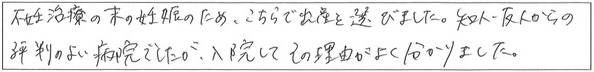 不妊治療の末の妊娠のため、こちらで出産を選びました。知人・友人からの
評判のよい病院でしたが、入院してその理由がよく分かりました。